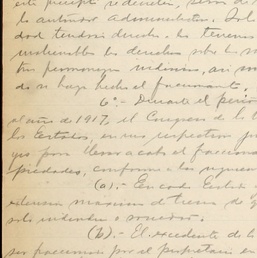 este precepto redimirlos, serán de
la autoridad administrativa. Solo
dad tendrán derecho a los terrenos
inalienables los derechos sobre los mis
tras permanezcan indivisos, así como
do se haya hecho el fraccionamiento.
6°.- Durante el período
el año de 1917, el Congreso de la
los Estados, en sus respectivas ju
yes para llevar a cabo el fraccionam
piedades, conforme a las siguientes
(a).- En cada Estado
extensión máxima de tierra de
solo individuo o sociedad.
(b).- El excedente de la
ser fraccionado por el propietario en